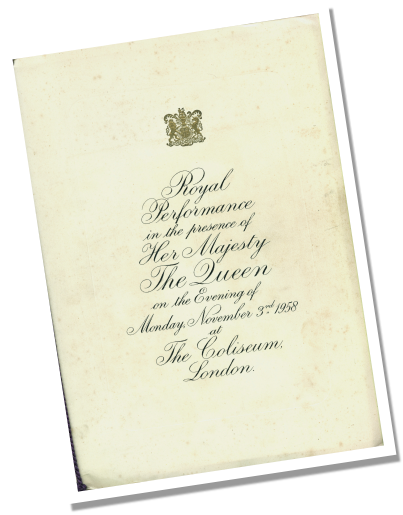 Royal
Performance
in the presence of
Her Majesty
The Queen
on the Evening of
Monday, November 3rd 1958
at
The Coliseum,
London.